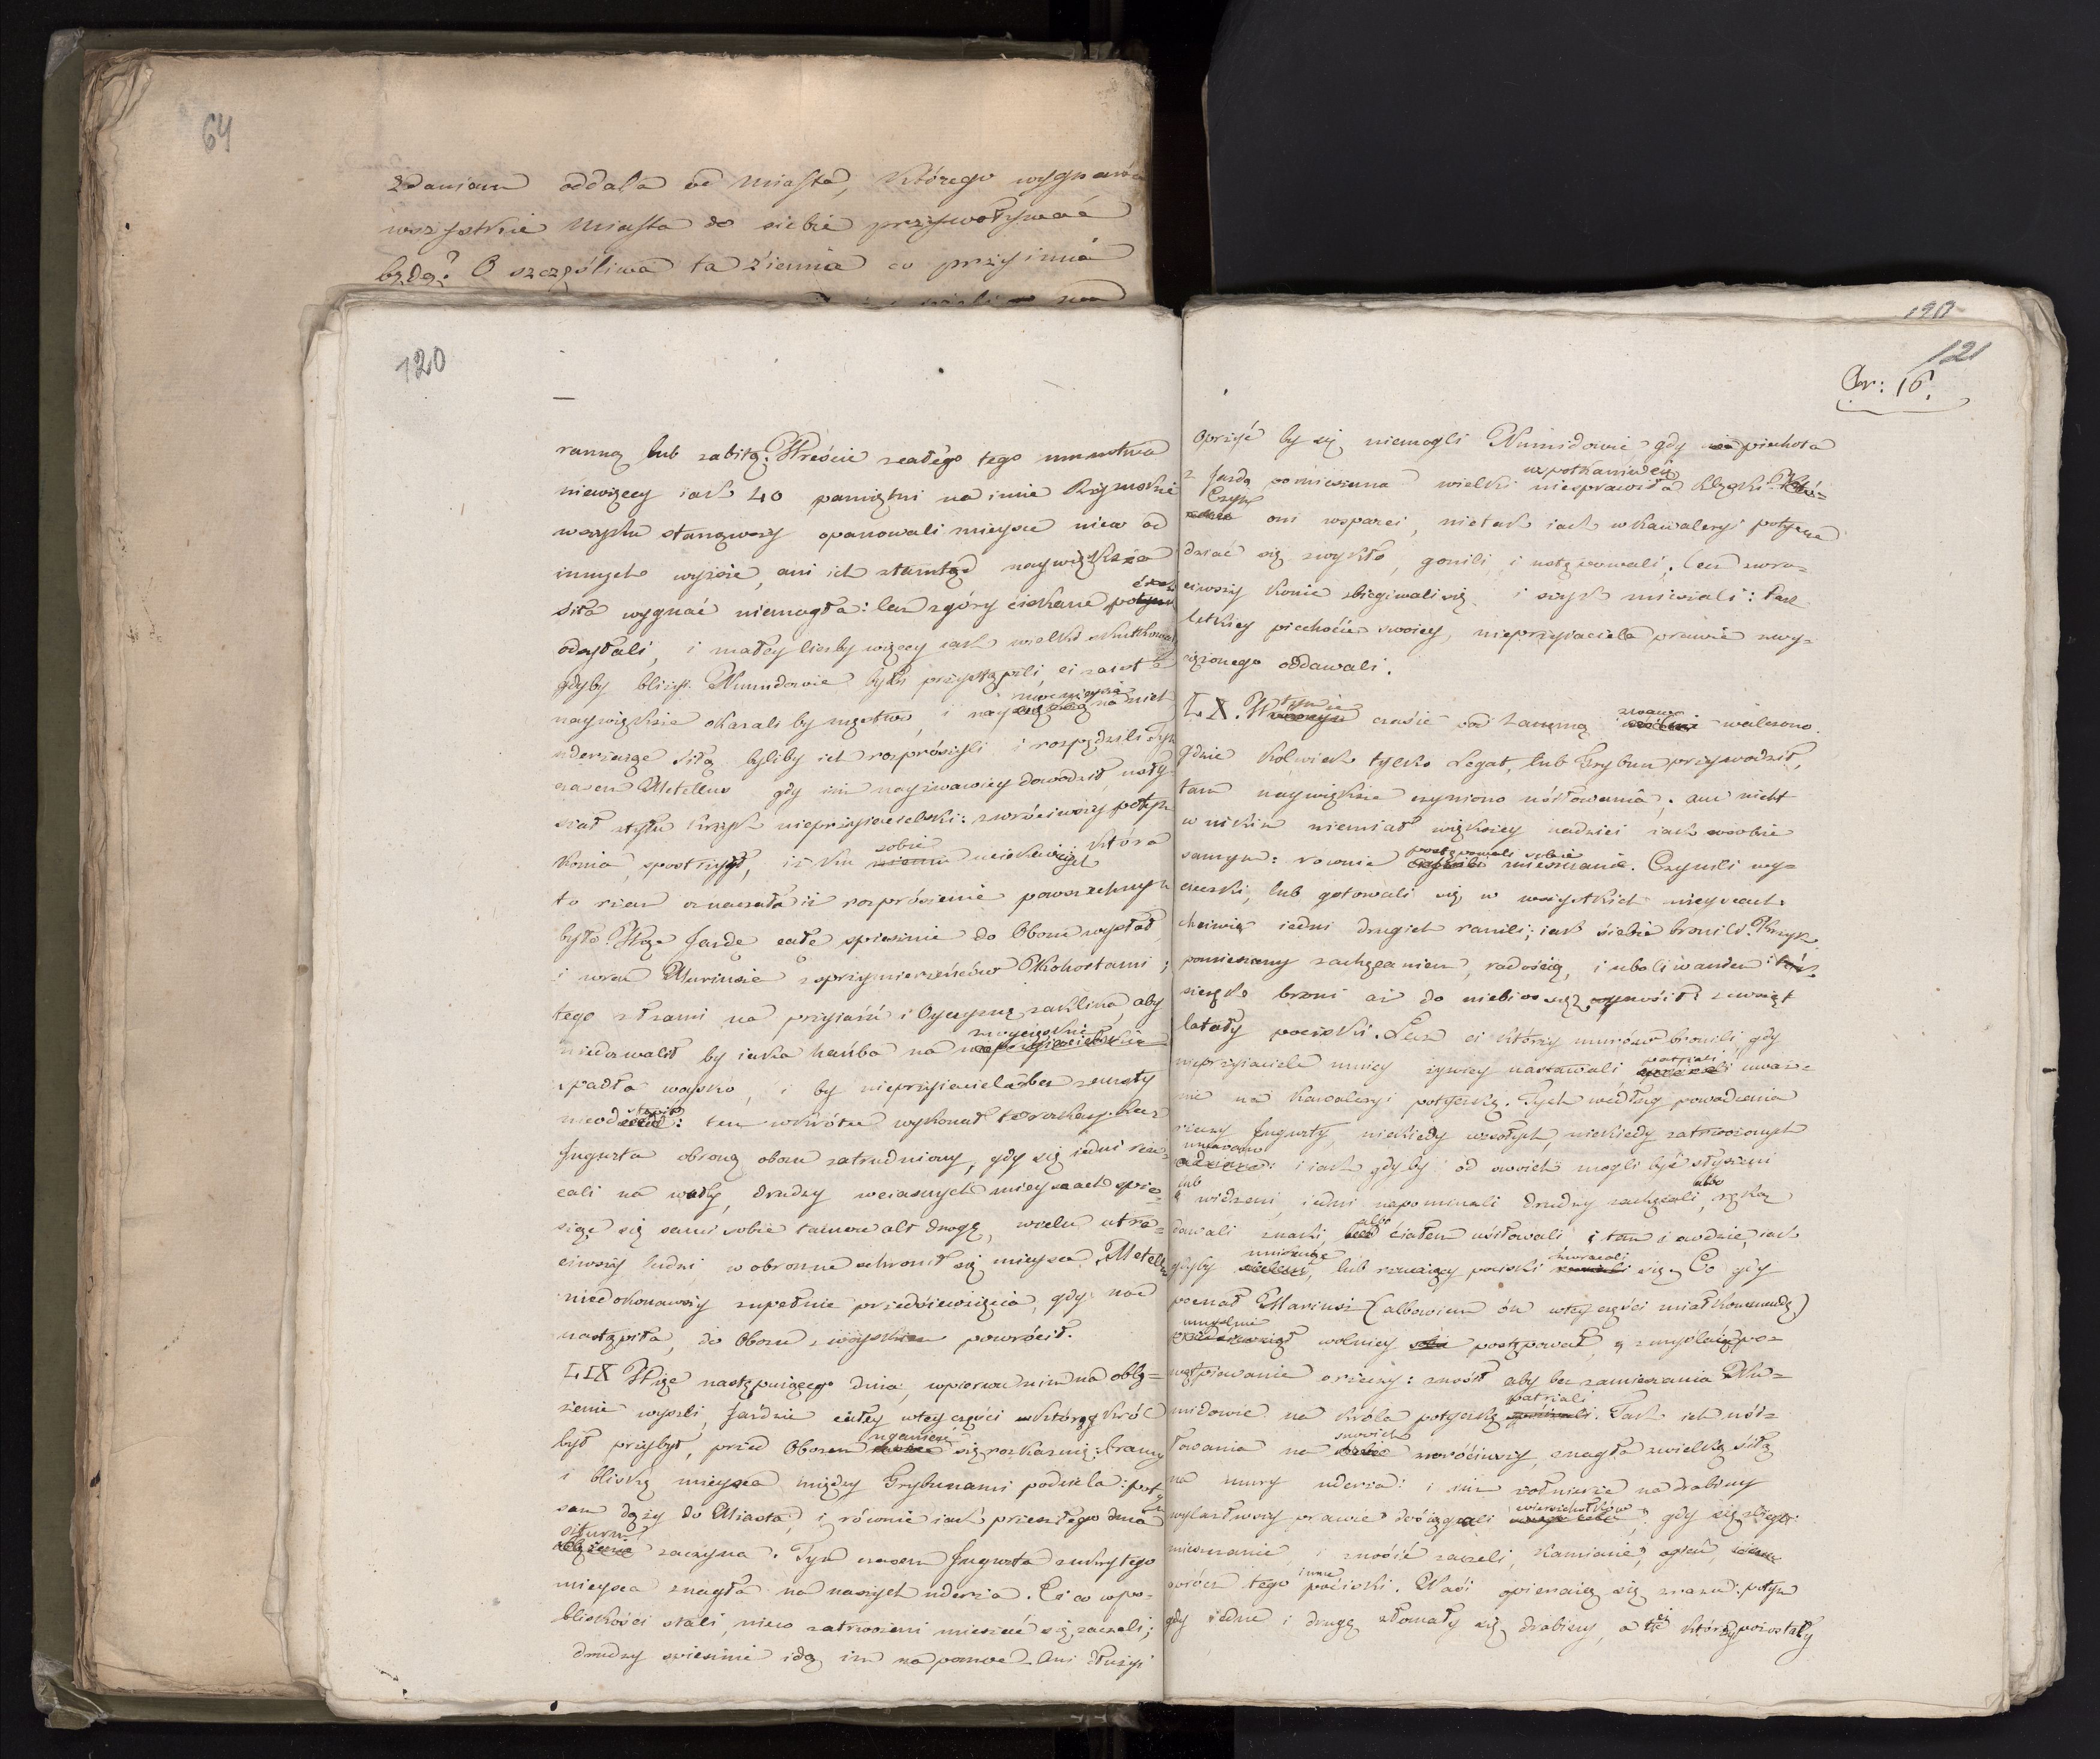 64
zdaniem oddala od Miasta, którego wygnańca
wszystkie Miasta do siebie przyswoływać
będą? O szczęśliwa ta ziemia co przyimie
120
ranną lub zabitą. Wreście zcałego tego mnóstwa
niewięcey iak 40 pamiętni na imie Rzymskie
wszyku stanąwszy opanowali mieysce niew od
innych wyższe, ani ich ztamtąd naywiększa
siła wygnać niemogła: lecz zgóry ciskane
odsyłali, i małey liczby więcey iak wielki skutkował
gdyby bliżey Numidowie byli przystąpili, ci zaiste
naywiększe okazali by męstwo, i na nich
uderzaiąc siłą byliby ich rozprószyli i rozpędzili. Tym
czasem Metellus gdy im nayżwawiey dowodził, usły-
szał ztyłu krzyk nieprzyiacielski: zwróciwszy potym
konia, spostrzegł, iż ku sobie uciekaiących która
to rzecz oznaczała iż rozprószenie powszechnym
było. Więc Jazdę całe spiesznie do Obozu wysłał
i wraz Mariusza zsprzymierzeńców Kohortami;
tego złzami na przyiaźń i Oyczyznę zaklina, aby
niedozwalił by iaka hańba na zwycięzkie
spadła woysko, i by nieprzyiaciel bez zemsty
nieodstąpił: ten wkrótce wykonał te rozkazy. Lecz
Jugurta obroną obozu zatrudniony, gdy się iedni rzu-
cali na wały, drudzy wciasnych mieyscach spie-
sząc się sami sobie tamowali drogę, wielu utra-
ciwszy ludzi, w obronne schronił się mieysca. Metellus
niedokonawszy zupełnie przedsięwzięcia, gdy noc
nastąpiła, do Obozu z woyskiem powrócił.
LIX Więc następuiącego dnia, wpierw nim na oblę=
żenie wyszli, Jaździe całey wtey części wktórey król
był przybył, przed Obozem uganiać się rozkazuie: bramy
i bliskie mieysca między Trybunami podziela: potym
sam dąży do Miasta, i równie iak przeszłego dnia
szturm zaczyna. Tym czasem Jugurta zukrytego
mieysca znagła na naszych uderza. Ci co wpo-
bliskości stali, nieco zatrwożeni mieszać się zaczeli;
drudzy spiesznie idą im na pomoc. Ani dłużey
120
121
Ar: 16.
Oprzyć by się niemogli Numidowie gdy piechota
z Jazdą pomieszana wielki wspotkaniu się niesprawiła klęski.
Czym oni wsparci, nietak iak wkawaleryi potym
dziać się zwykło, gonili i ustępowali. Lecz zwra-
ciwszy konie zbiegiwali się i szyk mieszali: tak
letkiey piechocie swoiey, nieprzyiaciela prawie zwy-
ciężonego oddawali.
LX. W tymże czasie pod Zammą żwawo walczono.
Gdzie kolwiek tylko Legat, lub Trybun przywodził,
tam naywiększe czyniono usiłowania; ani nicht
w nikim niemiał większey nadziei iak wsobie
samym: rownie postępowali sobie mieszczanie. Czynili wy=
cieczki, lub gotowali się w wszystkich mieyscach:
chciwiey iedni drugich ranili; iak siebie bronili. Krzyk
pomieszany zachęcaniem, radością, i ubolewaniem:
szczęk broni aż do niebios się wznosił: zewsząd
latały pociski. Lecz ci którzy murów bronili gdy
nieprzyiaciele mniey żywiey nastawali patrzali uważ=
nie na kawaleryi potyczkę. Tych według powodzenia
rzeczy Jugurty, niekiedy wesołych, niekiedy zatrwożonych
uważano: i iak gdyby od swoich mogli być słyszeni
lub widzeni, iedni napominali drudzy zachęcali, albo ręką
dawali znaki, albo ciałem usiłowali i tam i owdzie, iak
gdyby unikaiąc, lub rzucaiąc pociski zwracali się. Co gdy
poznał Mariusz (albowiem ón wtey części miał kommendę)
umyślnie wolniey postępował, zmyślaiąc po=
wątpiewanie o rzeczy: znosił aby bez zamieszania Nu=
midowie na króla potyczkę patrzali. Tak ich usi-
łowania na swoich zwróciwszy, znagła zwielką siłą
na mury uderza: i iuż żołnierze na drabiny
wylazłwszy prawie dosięgali wierzchołków, gdy się zbiegli
mieszczanie, i znosić zaczeli kamienie, ogień,
oprócz tego inne pociski. Nasi opieraią się zrazu: potym
gdy iedne i drugą złomały się drabiny, a ci którzy pozostały